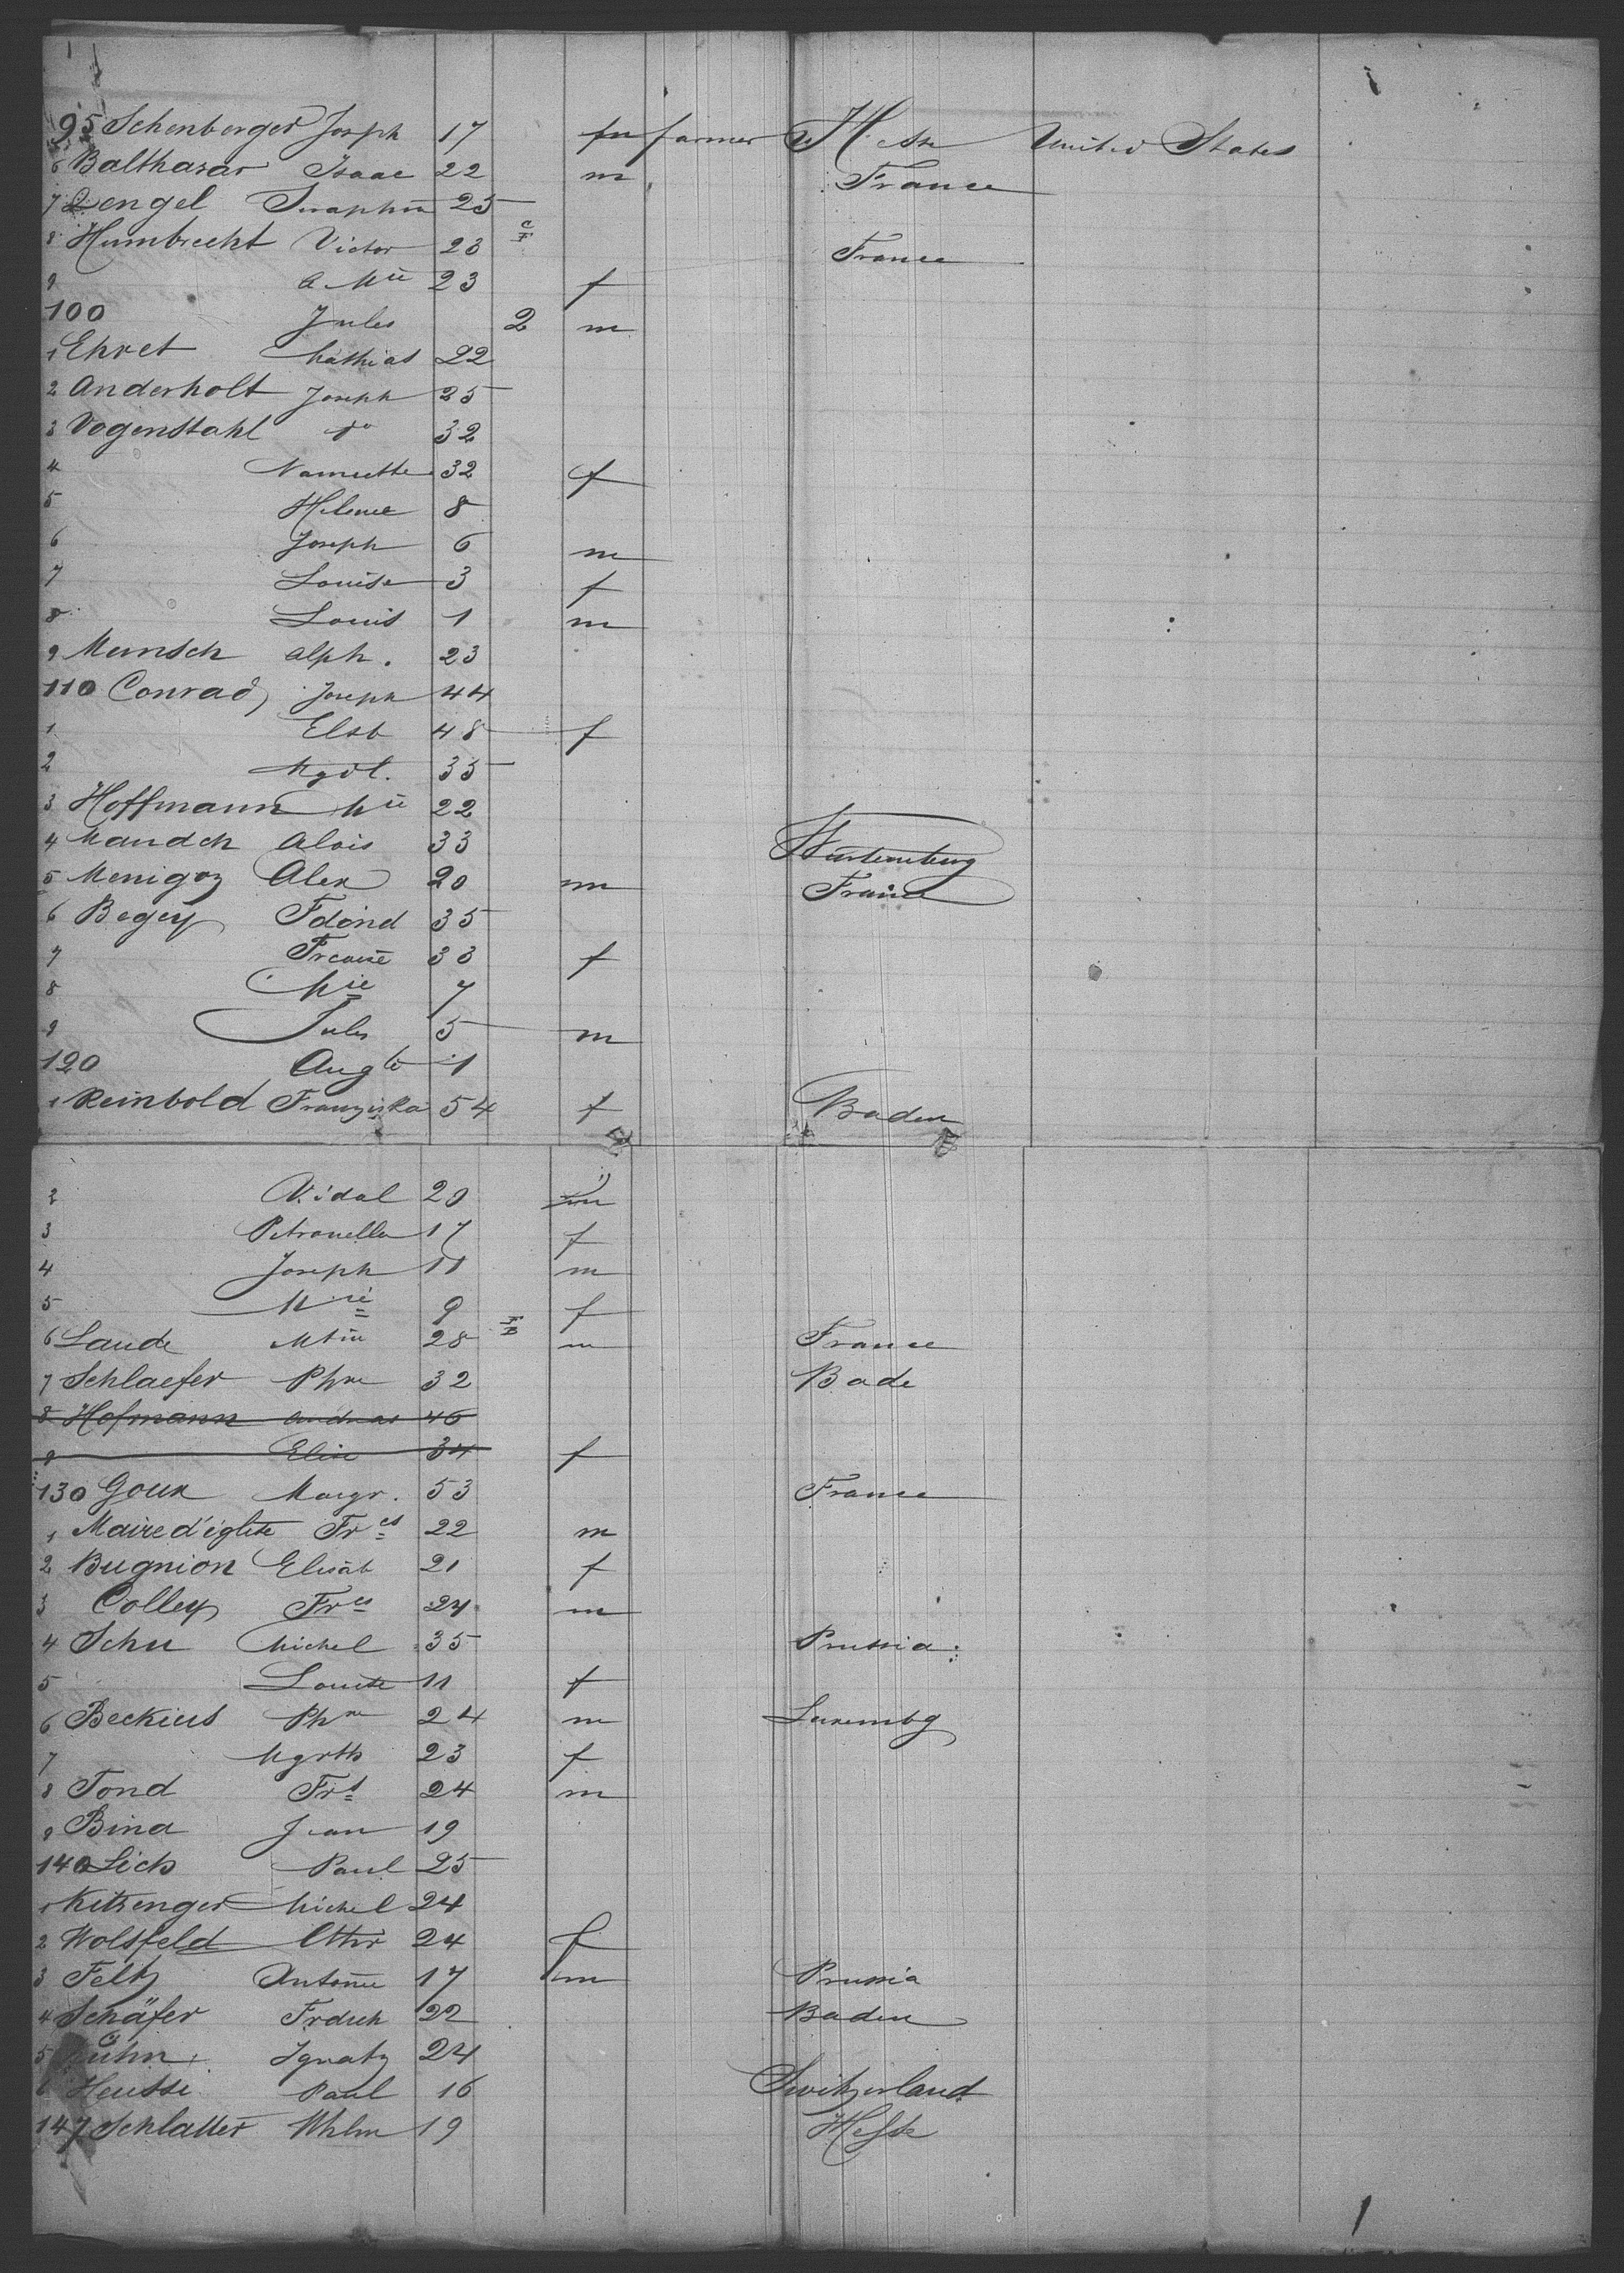 95 Schenberger Joseph 17 m farmer Hesse United States
6 Balthasar Isaac 22 m France
7 Dengel Seraphin 25
8 Humbrecht Victor 23 France
9 a. Mie 23 f
100 Jules 2 m
1 Ehret Mathias 22
2 Anderholt Joseph 25
3 Vogenstahl do 32
4 Nannette 32 f
5 Helene 8
6 Joseph 6 m
7 Louise 3 f
8 Louis 1 m
9 Munsch alph. 23
110 Conrad, Joseph 44
1 Elsb 48 f
2 Mgdl. 35
3 Hoffmann Mie 22
4 Mandch Alois 33 Wurtemberg
5 Menigoz Alex 20 m France
6 Begey Fdind 35
7 33 f
8 Mie 7
9 Jules 5 m
120 Augte 1
1 Reinbold Franziska 54 f Baden
2 Vidal 20 m
3 Petronella 17 f
4 Joseph 11 m
5 Mie 9 f
6 Laude Mtin 28 m France
7 Schlaefer Phre 32 Bade
8 Hofmann Andreas 46
9 Elise 34 f
130 Goux Margr. 53 France
1 Maire d'église Frcs 22 m
2 Bugnion Elisab 21 f
3 Colley Frcs 24 m
4 Schu Michel 35 Prussia
5 Louise 11 f
6 Beckius Phre 24 m Luxembg
7 Mgrth 23 f
8 Tond Frs 24 m
9 Bina Jean 19
140 Lich Paul 25
1 Kitzenger Michel 24
2 Wolsfeld Cthr 24 f
3 Feltz Antoine 17 m Prussia
4 Schäfer Frdch 22 Baden
5 Ignatz 24
6 Heussi Paul 16 Switzerland
147 Schlatter Whlm 19 Hesse